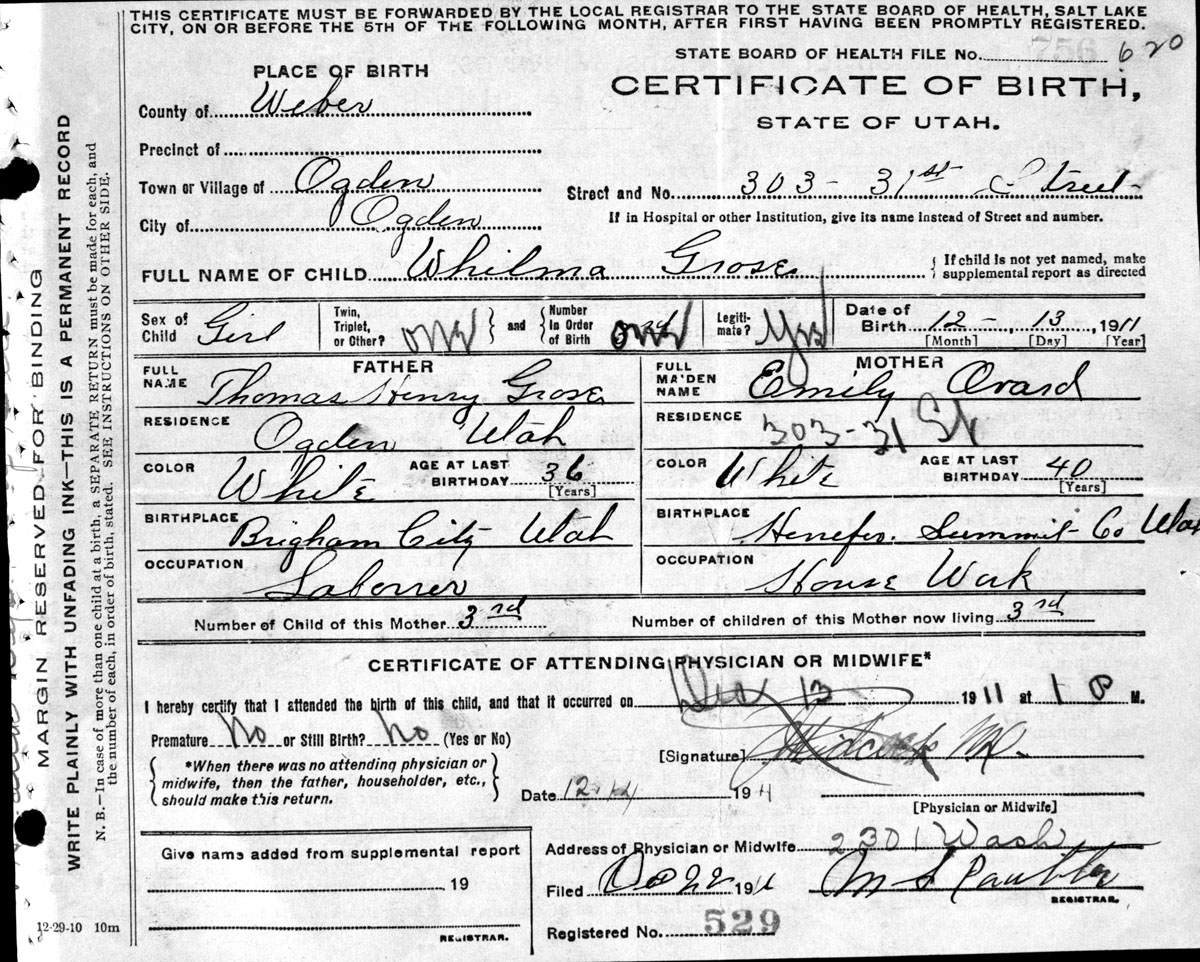 THIS CERTIFICATE MUST BE FORWARDED BY THE LOCAL REGISTRAR TO THE STATE BOARD OF HEALTH, SALT LAKE
CITY, ON OR BEFORE THE 5TH OF THE FOLLOWING MONTH, AFTER FIRST HAVING BEEN PROMPTLY REGISTERED.
STATE BOARD OF HEALTH FILE No. 756 620
PLACE OF BIRTH
CERTIFICATE OF BIRTH,
STATE OF UTAH.
County of Weber
Precinct of
Town or Village of Ogden
Street and No. 303 - 31st Street
City of Ogden
If in Hospital or other Institution, give its name instead of Street and number.
FULL NAME OF CHILD Whilma Grose
{ If child is not yet named, make
supplemental report as directed
Sex of Child Girl
Twin, Triplet, or Other? one } and { Number in Order of Birth
Legiti-mate? Yes
Date of Birth 12 - , 13 , 1911
[Month] [Day] [Year]
FATHER
MOTHER
FULL NAME Thomas Henry Grose
FULL MAIDEN NAME Emily Ovard
RESIDENCE Ogden Utah
RESIDENCE 303 - 31 St
COLOR White AGE AT LAST BIRTHDAY 36 [Years]
COLOR White AGE AT LAST BIRTHDAY 40 [Years]
BIRTHPLACE Brigham City Utah
BIRTHPLACE Henefer Summit Co Utah
OCCUPATION Laborrer
OCCUPATION House Work
Number of Child of this Mother 3rd
Number of children of this Mother now living 3rd
CERTIFICATE OF ATTENDING PHYSICIAN OR MIDWIFE*
I hereby certify that I attended the birth of this child, and that it occurred on Dec 13 1911 at 1 M.
Premature No or Still Birth? No (Yes or No)
[Signature]
{ *When there was no attending physician or
midwife, then the father, householder, etc.,
should make this return. }
Date 12-14 1911
[Physician or Midwife]
Give name added from supplemental report
19
REGISTRAR.
Address of Physician or Midwife 2301 Wash
Filed 22 1911
REGISTRAR.
Registered No. 529
12-29-10 10m
MARGIN RESERVED FOR BINDING
WRITE PLAINLY WITH UNFADING INK—THIS IS A PERMANENT RECORD
N. B.—In case of more than one child at a birth, a SEPARATE RETURN must be made for each, and
the number of each, in order of birth, stated. SEE INSTRUCTIONS ON OTHER SIDE.